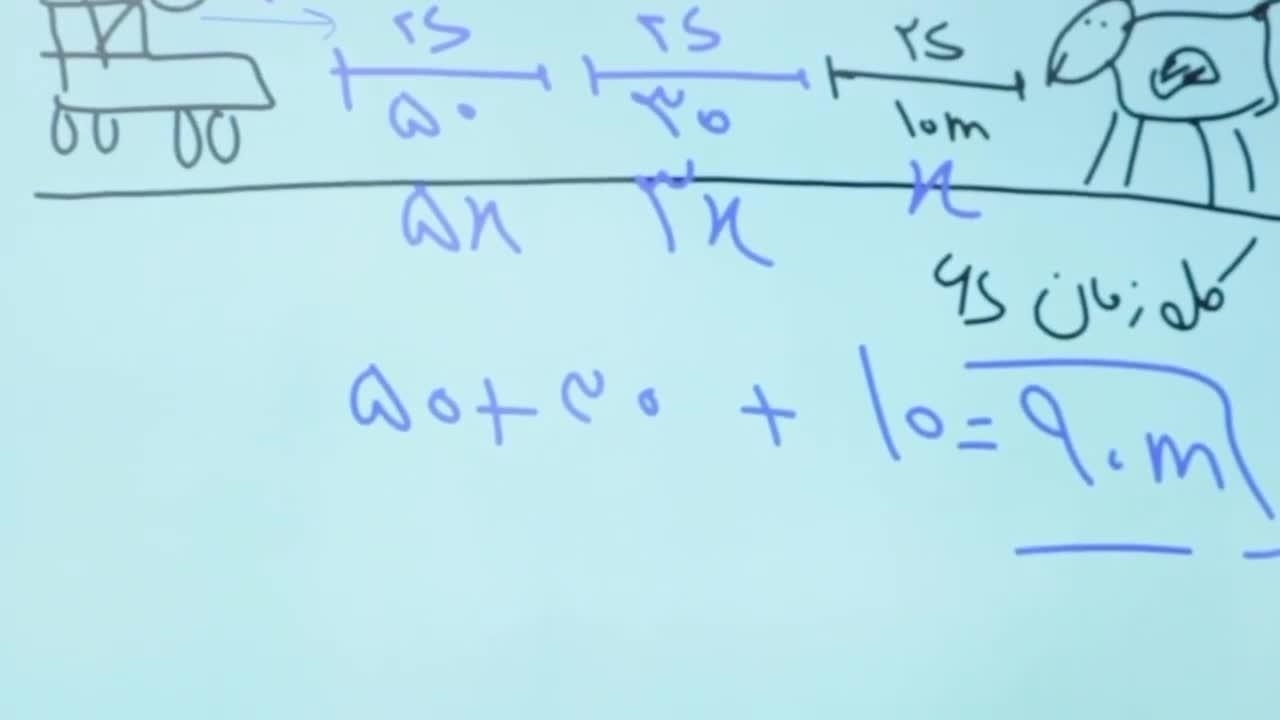 ۲s ۲s ۲s
۵۰ ۳۰ ۱۰m
۵x ۳x x
کل زمان ۶s
۵۰ + ۳۰ + ۱۰ = ۹۰m